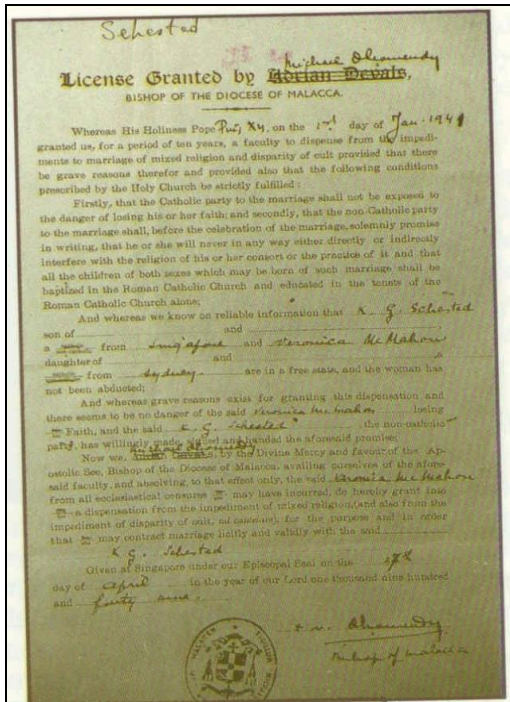 Sehested
Michael Olcomendy
License Granted by Adrian Devals,
BISHOP OF THE DIOCESE OF MALACCA.
Whereas His Holiness Pope Pius XII, on the 1st day of Jan. 1941
granted us, for a period of ten years, a faculty to dispense from the impedi-
ments to marriage of mixed religion and disparity of cult provided that there
be grave reasons therefor and provided also that the following conditions
prescribed by the Holy Church be strictly fulfilled :
Firstly, that the Catholic party to the marriage shall not be exposed to
the danger of losing his or her faith; and secondly, that the non-Catholic party
to the marriage shall, before the celebration of the marriage, solemnly promise
in writing, that he or she will never in any way either directly or indirectly
interfere with the religion of his or her consort or the practice of it and that
all the children of both sexes which may be born of such marriage shall be
baptized in the Roman Catholic Church and educated in the tenets of the
Roman Catholic Church alone;
And whereas we know on reliable information that K G. Sehested
son of and
a from Singapore and Veronica McMahon
daughter of and a
from Sydney are in a free state, and the woman has
not been abducted;
And whereas grave reasons exist for granting this dispensation and
there seems to be no danger of the said Veronica McMahon losing
Faith, and the said K. G. Sehested, the non-catholic
party, has willingly made, signed and handed the aforesaid promise;
Michael Olcomendy
Now we, Adrian Devals, by the Divine Mercy and favour of the Ap-
ostolic See, Bishop of the Diocese of Malacca, availing ourselves of the afore-
said faculty, and absolving, to that effect only, the said Veronica McMahon
from all ecclesiastical censures may have incurred, do hereby grant unto
a dispensation from the impediment of mixed religion, (and also from the
impediment of disparity of cult, ad cautelam), for the purpose and in order
that may contract marriage licitly and validly with the said
K G. Sehested
Given at Singapore under our Episcopal Seal on the 17th
day of April in the year of our Lord one thousand nine hundred
and forty nine.
Olcomendy
Bishop of Malacca